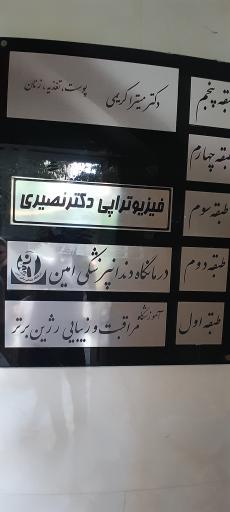 دکتر میترا کریمی پوست، تغذیه، زنان
طبقه پنجم
طبقه چهارم
فیزیوتراپی دکتر نصیری
طبقه سوم
درمانگاه دندانپزشکی امین
طبقه دوم
آموزشگاه مراقبت و زیبایی رزین برتر
طبقه اول